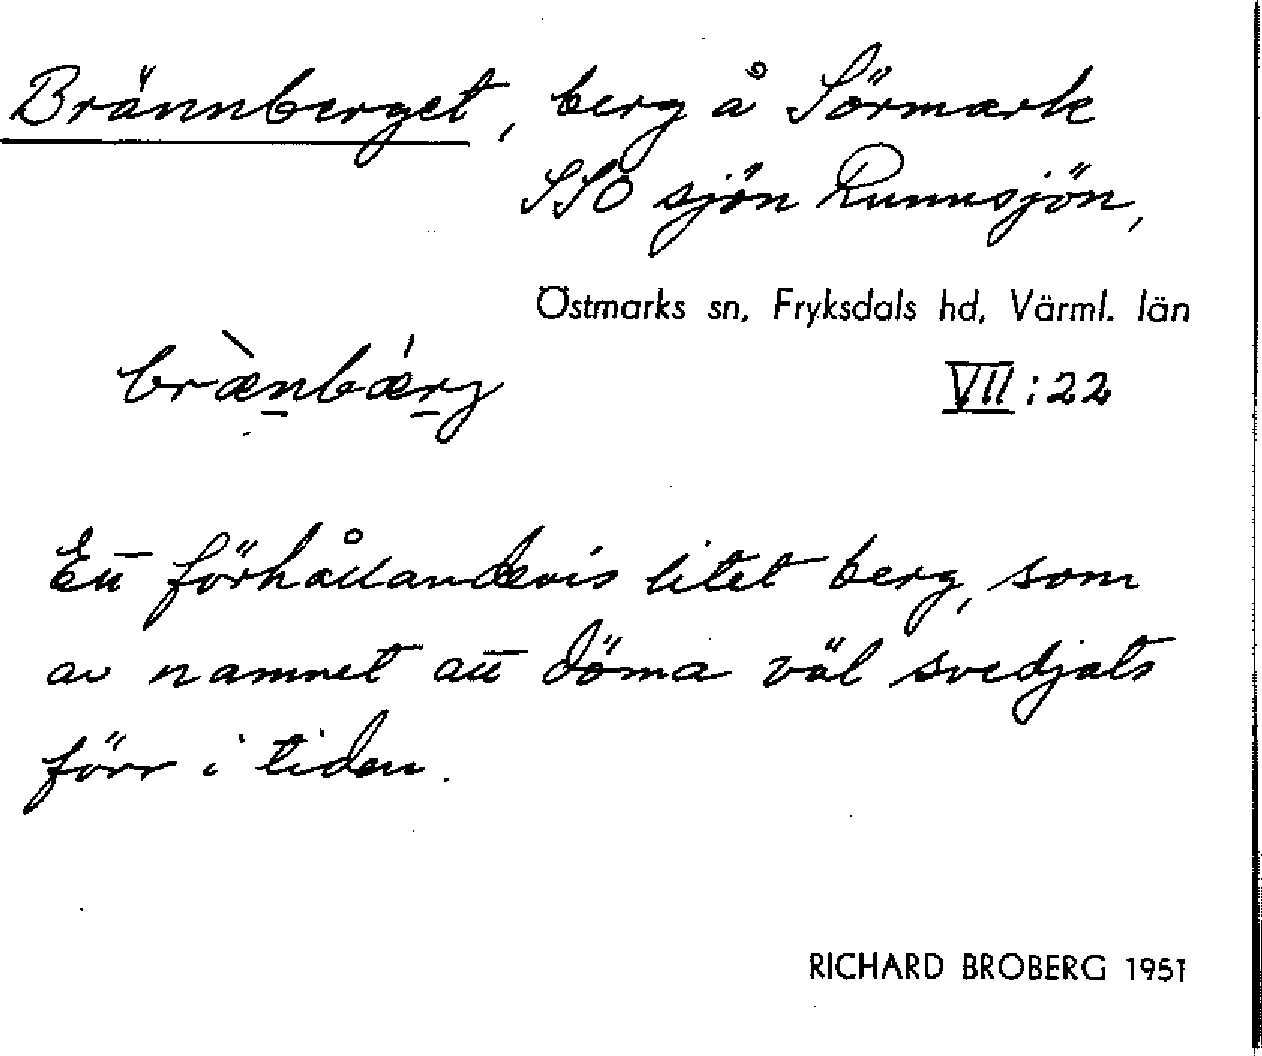 Brännberget, berg å Sörmark
SSO sjön Runnsjön,
Östmarks sn, Fryksdals hd, Värml. län
bræ̀nbǽrj
VII:22
Ett förhållandevis litet berg, som
av namnet att döma väl svedjats
förr i tiden.
RICHARD BROBERG 1951